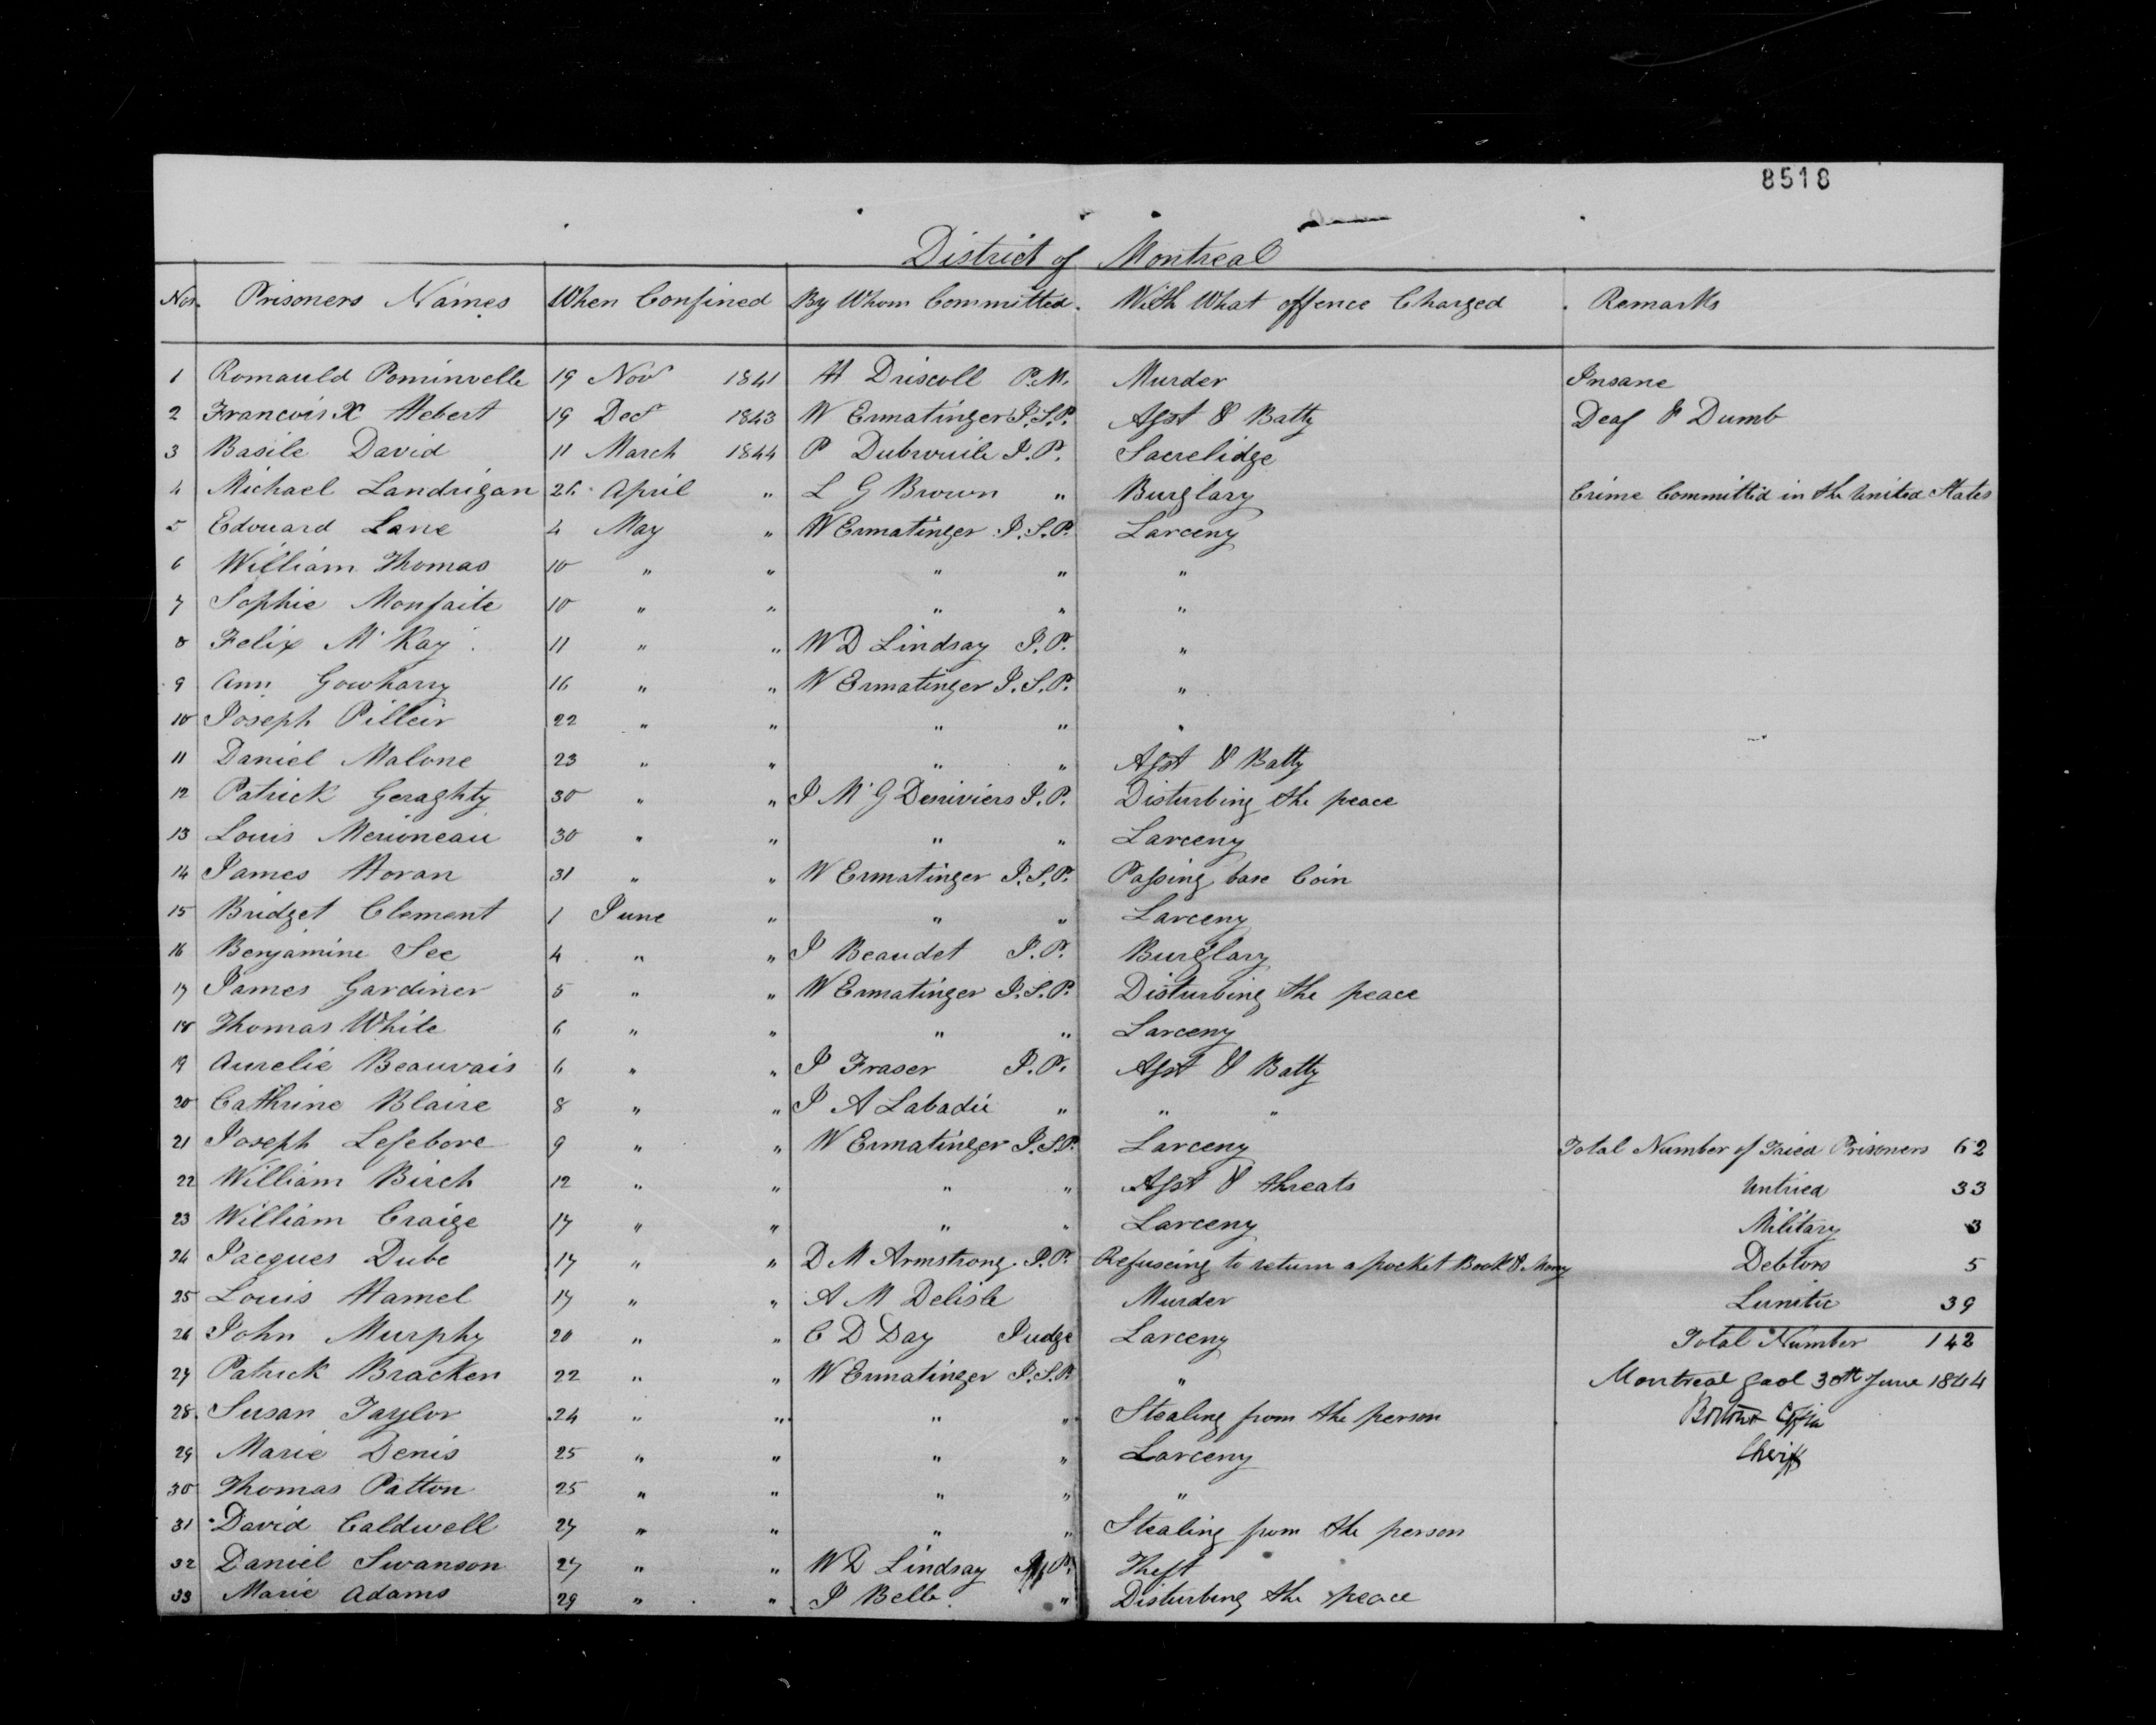 8518
District of Montreal
Nos. Prisoners Names When Confined By Whom Committed. With What offence Charged Remarks
1 Romauld Pominvelle 19 Novr 1841 H Driscoll P.M. Murder Insane
2 Francois X Hebert 19 Decr 1843 W Ermatinger I.S.P. Asst & Batty Deaf & Dumb
3 Basile David 11 March 1844 P Dubruile J.P. Sacrelidge
4 Michael Landrigan 26 April " L G Brown " Burglary Crime Committed in the United States
5 Edouard Lane 4 May " W Ermatinger I.S.P. Larceny
6 William Thomas 10 " " " " "
7 Sophie Monfaite 10 " " " " "
8 Felix Mc Kay 11 " " W D Lindsay J.P. "
9 Ann Gowharry 16 " " W Ermatinger I.S.P. "
10 Joseph Pilleir 22 " " " " "
11 Daniel Malone 23 " " " " Asst & Batty
12 Patrick Geraghty 30 " " J McG Desriviers J.P. Disturbing the peace
13 Louis Merioneau 30 " " " " Larceny
14 James Horan 31 " " W Ermatinger I.S.P. Passing base Coin
15 Bridget Clement 1 June " " " Larceny
16 Benjamine See 4 " " J Beaudet J.P. Burglary
17 James Gardiner 5 " " W Ermatinger I.S.P. Disturbing the peace
18 Thomas White 6 " " " " Larceny
19 Aurelie Beauvais 6 " " J Fraser J.P. Asst & Batty
20 Cathrine Blaire 8 " " J A Labadie " " "
21 Joseph Lefebore 9 " " W Ermatinger I.S.P. Larceny Total Number of Tried Prisoners 62
22 William Birch 12 " " " " Asst & threats Untried 33
23 William Craige 17 " " " " Larceny Military 3
24 Jacques Dube 17 " " D M Armstrong J.P. Refuseing to return a pocket Book & Mony Debtors 5
25 Louis Hamel 17 " " A M Delisle Murder Lunatic 39
26 John Murphy 20 " " C D Day Judge Larceny Total Number 142
27 Patrick Bracken 22 " " W Ermatinger I.S.P. " Montreal Gaol 30th June 1844
28 Susan Taylor 24 " " " " Stealing from the person Boston & Coffin
29 Marie Denis 25 " " " " Larceny Sheriff
30 Thomas Patton 25 " " " " "
31 David Caldwell 27 " " " " Stealing from the person
32 Daniel Swanson 27 " " W D Lindsay J.P. Theft
33 Marie Adams 29 " " J Belle " Disturbing the peace